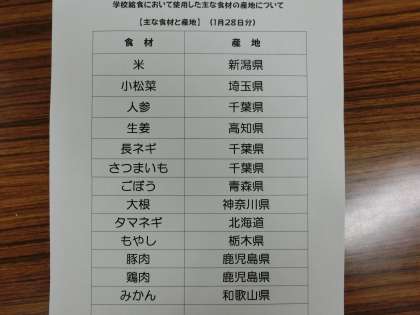 学校給食において使用した主な食材の産地について
【主な食材と産地】 (1月28日分)
食 材 産 地
米 新潟県
小松菜 埼玉県
人参 千葉県
生姜 高知県
長ネギ 千葉県
さつまいも 千葉県
ごぼう 青森県
大根 神奈川県
タマネギ 北海道
もやし 栃木県
豚肉 鹿児島県
鶏肉 鹿児島県
みかん 和歌山県